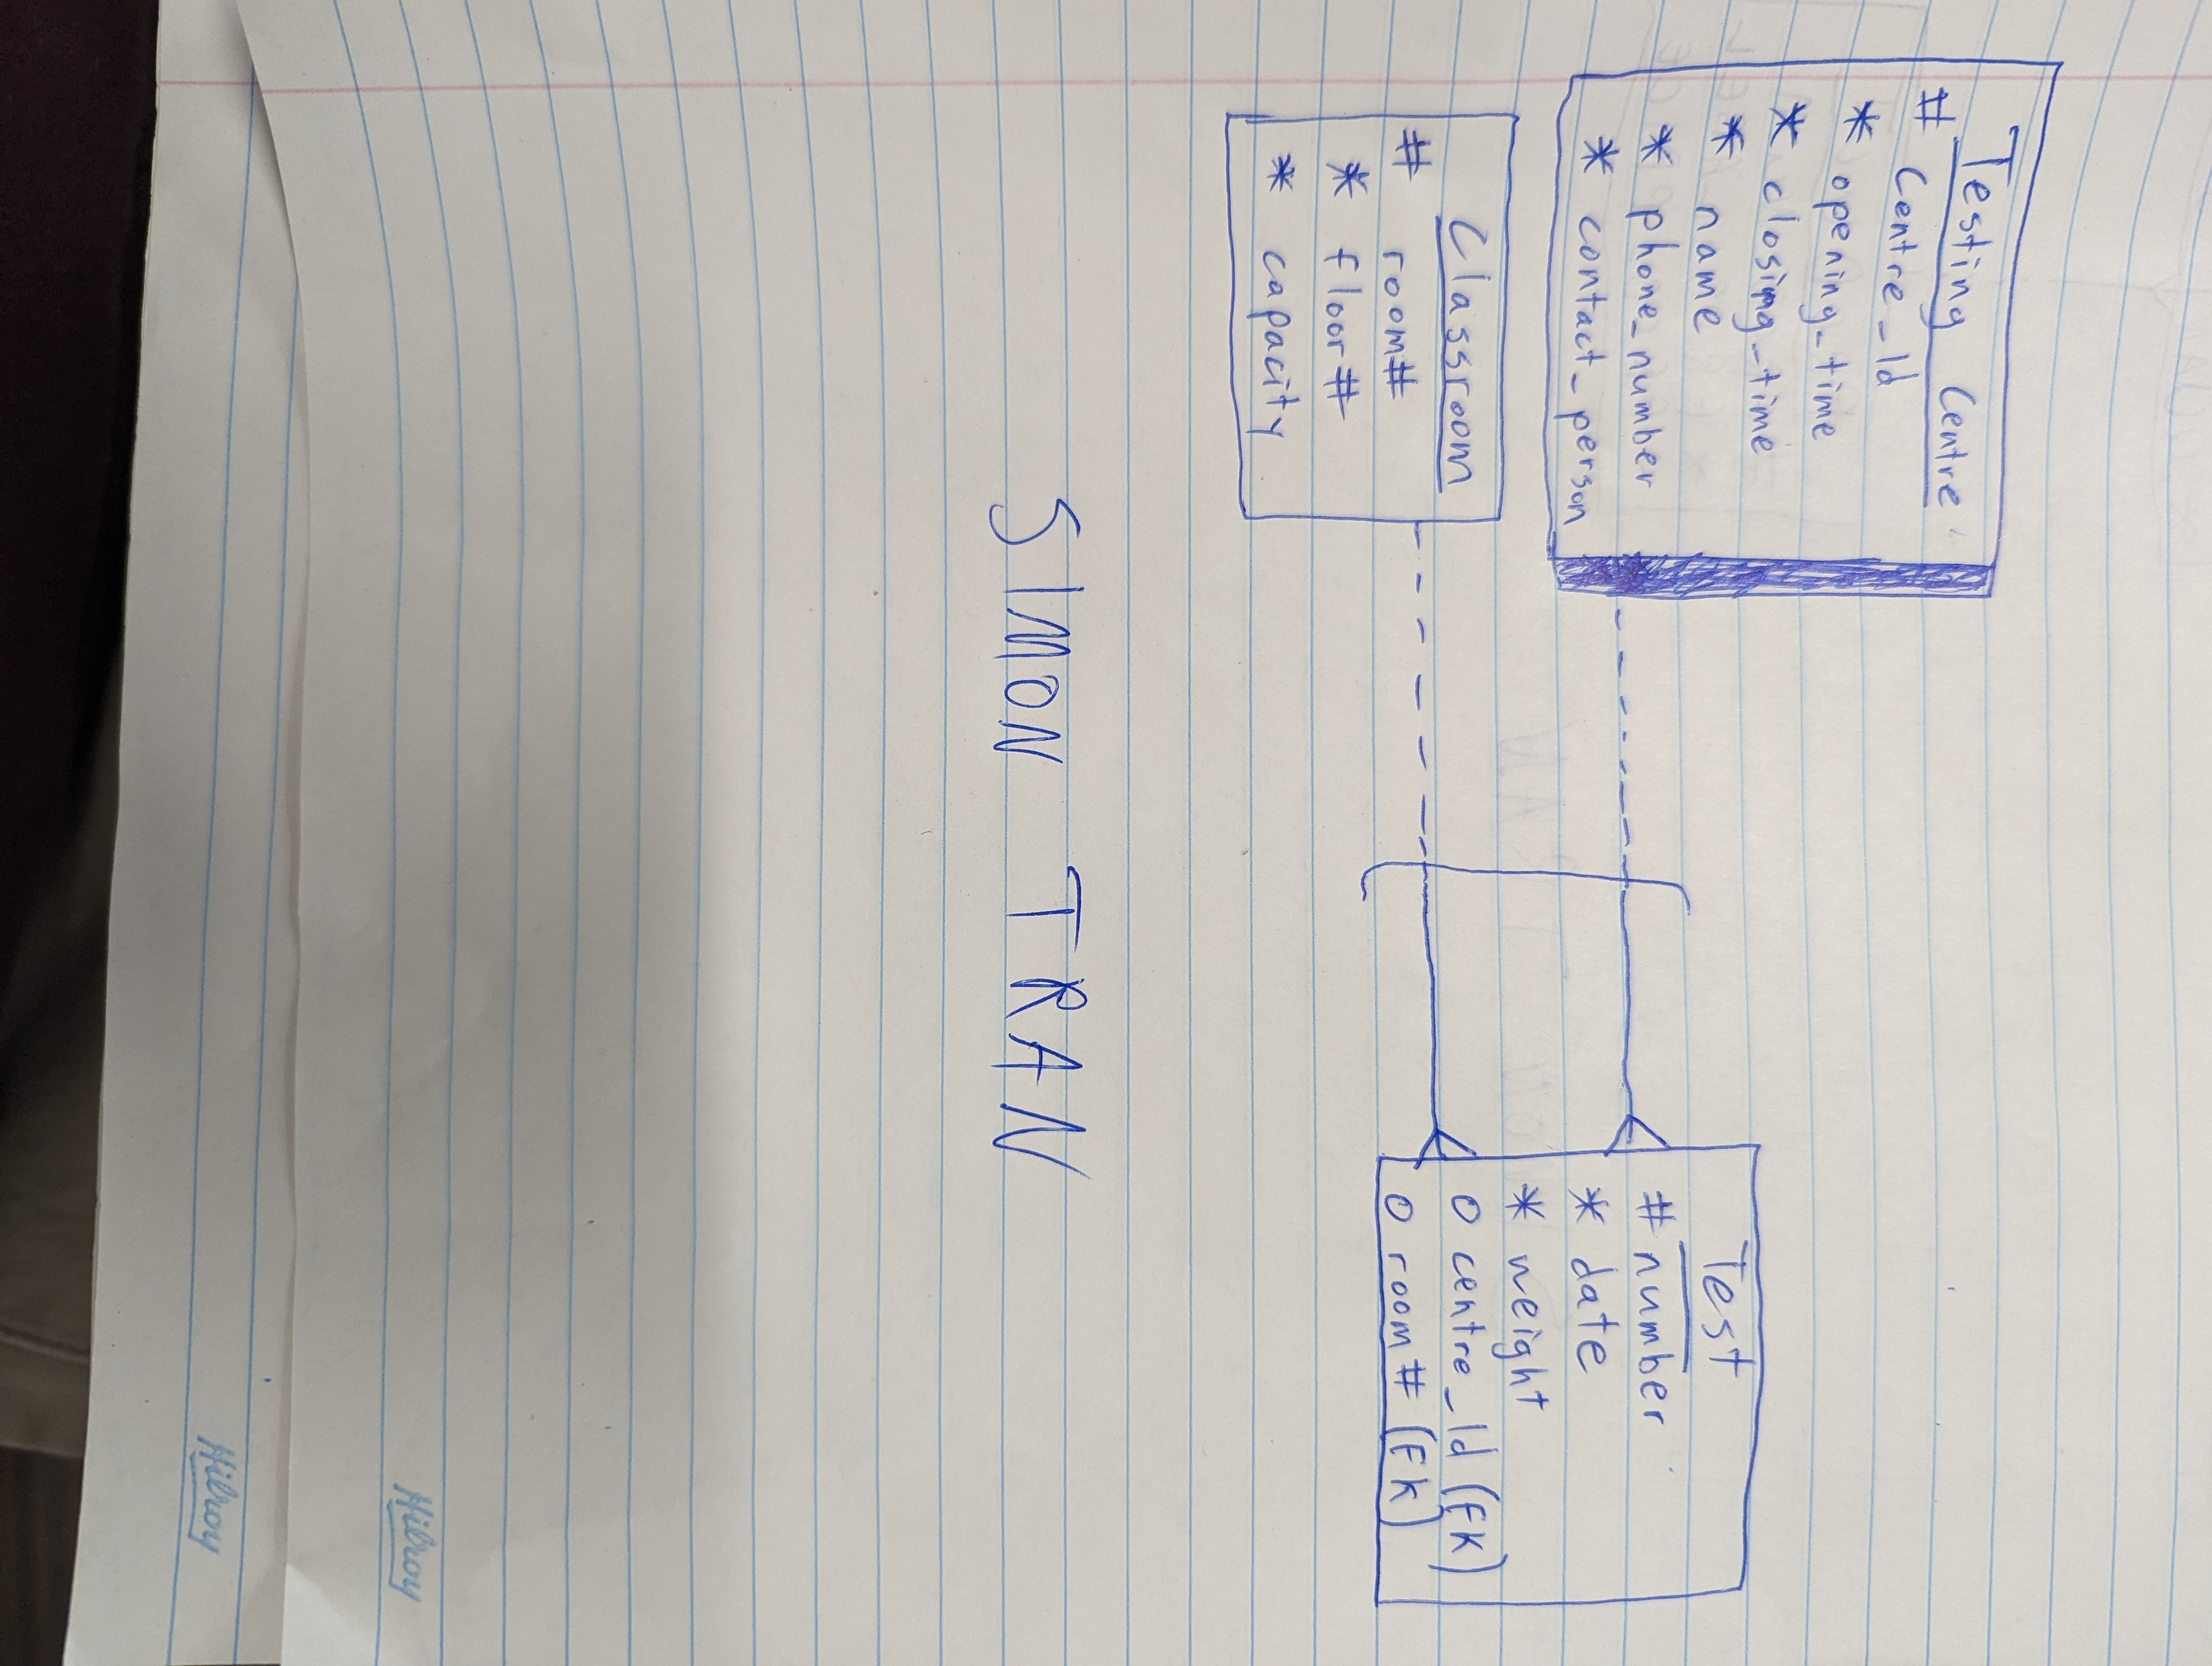 Testing Centre
# Centre_Id
* opening_time
* closing_time
* name
* phone_number
* contact_person
Classroom
# room#
* floor#
* capacity
Test
# number
* date
* weight
o centre_Id (FK)
o room# (FK)
SIMON TRAN
Hilroy
Hilroy